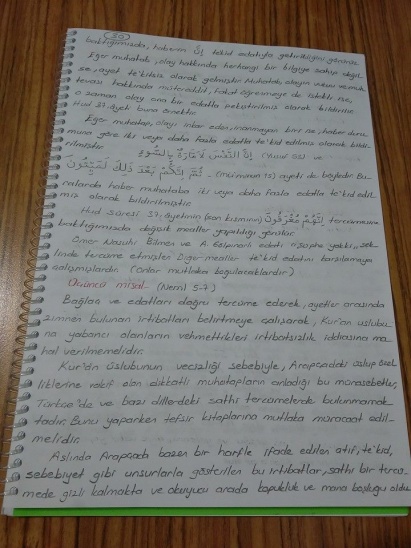 20
baktığımızda, haberin إِنَّ te'kid edatıyla getirildiğini görürüz.
Eğer muhatab, olay hakkında herhangi bir bilgiye sahip değil
se, ayet te'kilsiz olarak gelmiştir. Muhatab, olayın
hakkında mütereddit, fakat öğrenmeye de istekli ise,
o zaman olay ona bir edatla pekiştirilmiş olarak bildirilir.
Hud 37. ayeti buna örnektir.
Eğer muhatap, olayı inkar eden, inanmayan biri ise, haber duru
muna göre iki veya daha fazla edatla te'kid edilmiş olarak bildi-
rilmiştir. إِنَّ النَّفْسَ لَأَمَّارَةٌ بِالسُّوءِ (Yusuf 53) ve
ثُمَّ إِنَّكُمْ بَعْدَ ذَلِكَ لَمَيِّتُونَ (mü'minun 15) ayeti de böyledir. Bu-
ralarda haber muhataba iki veya daha fazla edatla te'kid edil
miş olarak bildirilmiştir.
Hud sûresi 37. âyetinin (son kısmının) إِنَّهُمْ مُغْرَقُونَ tercümesine
baktığımızda değişik mealler yapıldığı görülür.
Ömer Nasuhi Bilmen ve A. Gölpınarlı edatı "şüphe yokki" şek-
linde tercüme etmişler. Diğer mealler te'kid edatını karşılamaya
çalışmışlardır. (Onlar mutlaka boğulacaklardır)
Üçüncü misal- (Neml 5-7)
Bağlaç ve edatları doğru tercüme ederek, ayetler arasında
zımnen bulunan irtibatları belirtmeye çalışarak, Kur'an üslubu-
na yabancı olanların vehmettikleri irtibatsızlık iddiasına ma
hal verilmemelidir.
Kur'ân üslubunun vecizliği sebebiyle, Arapçadaki üslup özel
liklerine vakıf olan dikkatli muhatapların anladığı bu münasebetler,
Türkçe'de ve bazı dillerdeki sathi tercümelerde bulunmamak-
tadır. Bunu yaparken tefsir kitaplarına mutlaka müracaat edil-
melidir.
Aslında Arapçada bazen bir harfle ifade edilen atıf, te'kid,
sebebiyet gibi unsurlarla gösterilen bu irtibatlar, sathi bir tercü-
mede gizli kalmakta ve okuyucu arada kopukluk ve mana boşluğu oldu